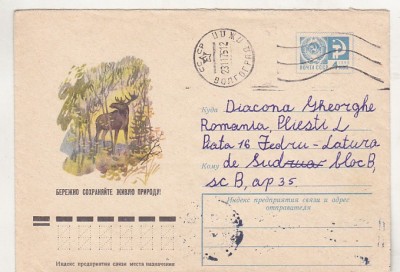 СССР ПЖДП
ВОЛГОГРАД
ПОЧТА СССР
4
Куда Diacona Gheorghe
Romania, Pliesti L
Piata 16 Fedru-Latura
Кому de Sud bloc B,
sc B, ap 35
БЕРЕЖНО СОХРАНЯЙТЕ ЖИВУЮ ПРИРОДУ!
Индекс предприятия связи и адрес
отправителя
Индекс предприятия связи места назначения